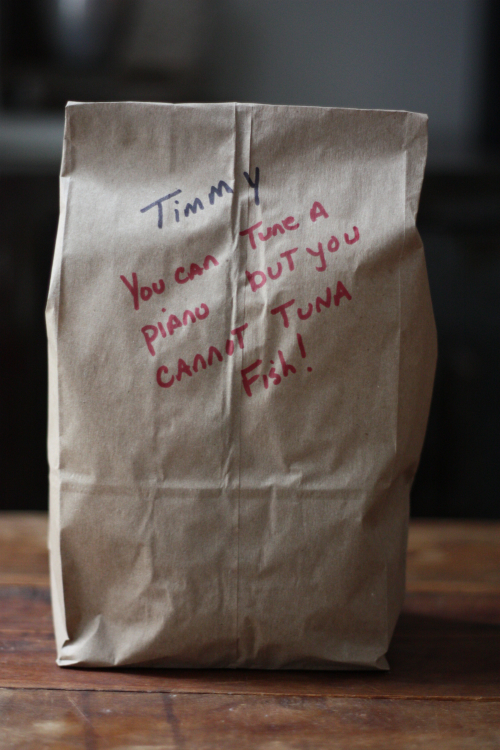 Timmy
You can Tune A
piano but you
cannot Tuna
Fish!